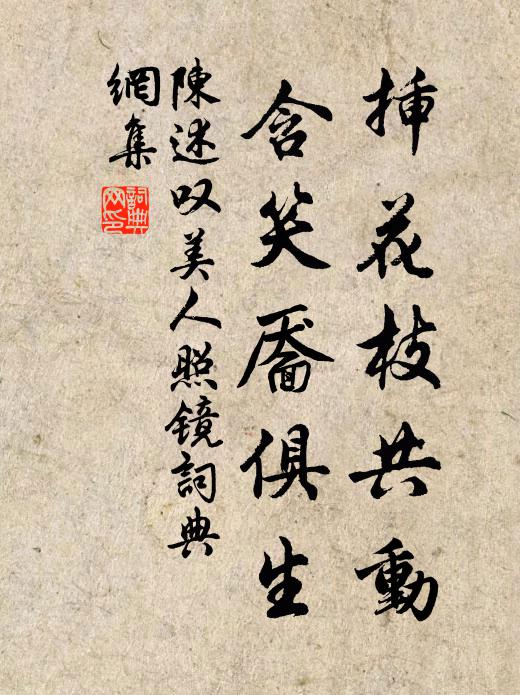 挿花枝共動
含笑靨俱生
陳述叹美人照镜詞典
網集
詞典网印